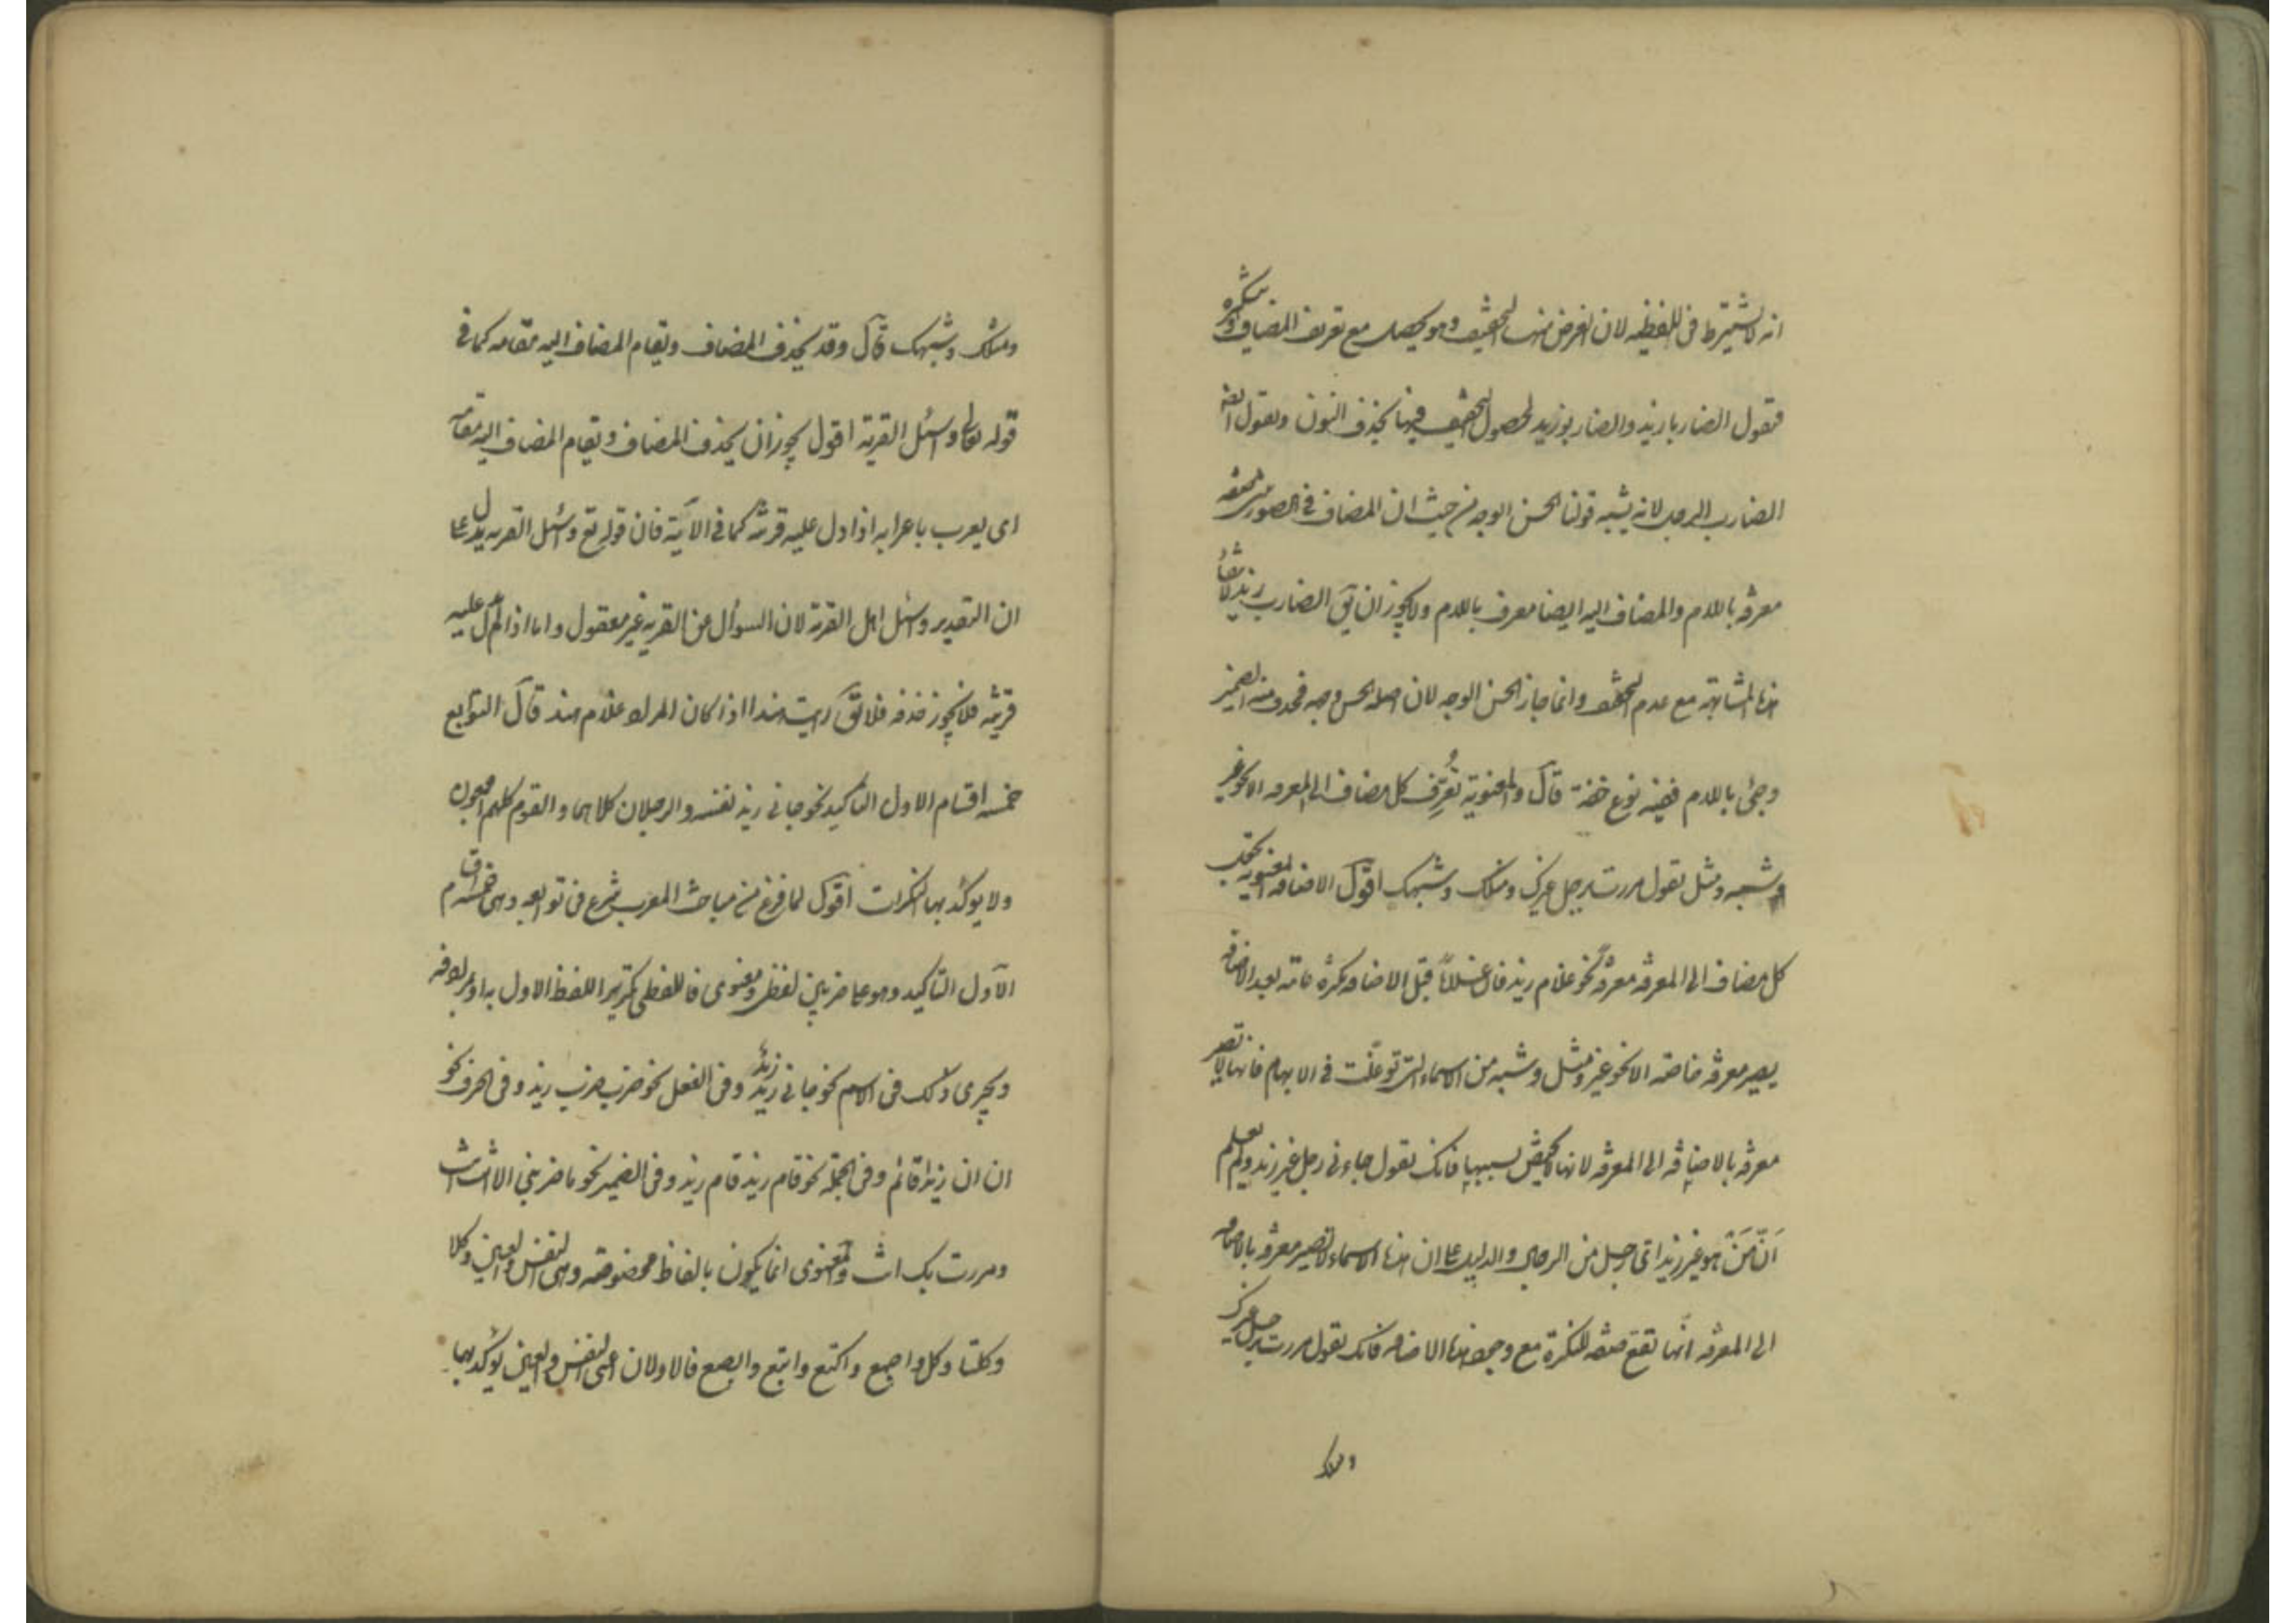 انه لا يشترط فى اللفظيه لان الغرض منها التخفيف وهو يحصل مع تعريف المضاف وتنكيره
فتقول الضاربا زيد والضاربو زيد لحصول التخفيف فيهما بحذف النون وتقول ايضا
الضارب الرجل لانه يشبه قولنا الحسن الوجه من حيث ان المضاف فى الصورتين صفة
معرفة باللام والمضاف اليه ايضا معرف باللام ولا يجوز ان يق الضارب زيد لانتفاء
هذه المشابهة مع عدم التخفيف وانما جاز الحسن الوجه لان اصله الحسن وجهه فحذف منه الضمير
وجئ باللام ففيه نوع خفة قال والمعنوية تُعرِّف كل مضاف الى المعرفه الا نحو غير
وشبه ومثل تقول مررت برجل غيرك ومثلك وشبهك اقول الاضافة المعنوية تجعل
كل مضاف الى المعرفه معرفةً نحو غلام زيد فان غلاماً قبل الاضافه نكرة عامة بعد الاضافه
يصير معرفه خاصه الا نحو غير ومثل وشبه من الاسماء التى توغلت فى الابهام فانها لا تصير
معرفه بالاضافه الى المعرفه لانها لا تختص بسببها فانك تقول جاءنى رجل غير زيد ولم يعلم
اَنّ مَنْ هو غير زيد اىّ رجل من الرجال والدليل على ان هذه الاسماء لا تصير معرفه بالاضافه
الى المعرفه انّها تقع صفه للنكرة مع وجود هذه الاضافه فانك تقول مررت برجل غيرك
ومثلك
ومثلك وشبهك قال وقد يحذف المضاف ويقام المضاف اليه مقامه كما فى
قوله تعالى واسئل القرية اقول يجوز ان يحذف المضاف ويقام المضاف اليه مقامه
اى يعرب باعرابه اذا دل عليه قرينة كما فى الآية فان قوله تع واسئل القريه يدل على
ان التقدير واسئل اهل القرية لان السوأل عن القريه غير معقول واما اذا لم يدل عليه
قرينه فلا يجوز حذفه فلا يق رايت هندا اذا كان المراد غلام هند قال التوابع
خمسه اقسام الاول التأكيد نحو جاءنى زيد نفسه والرجلان كلاهما والقوم كلهم اجمعون
ولا يؤكد بها النكرات اقول لما فرغ من مباحث المعرب شرع فى توابعه وهى خمسه اقسام
الآول التاكيد وهو على ضربين لفظى ومعنوى فاللفظى تكرير اللفظ الاول به او بمرادفه
ويجرى ذلك فى الاسم نحو جاءنى زيد زيدٌ وفى الفعل نحو ضرب ضرب زيد وفى الحرف نحو
ان ان زيدا قائم وفى الجملة نحو قام زيد قام زيد وفى الضمير نحو ما ضربنى الا انت انت
ومررت بك انت والمعنوى انما يكون بالفاظ مخصوصه وهى النفس والعين وكلا
وكلتا وكل واجمع واكتع وابتع وابصع فالاولان اعنى النفس والعين يؤكد بهما